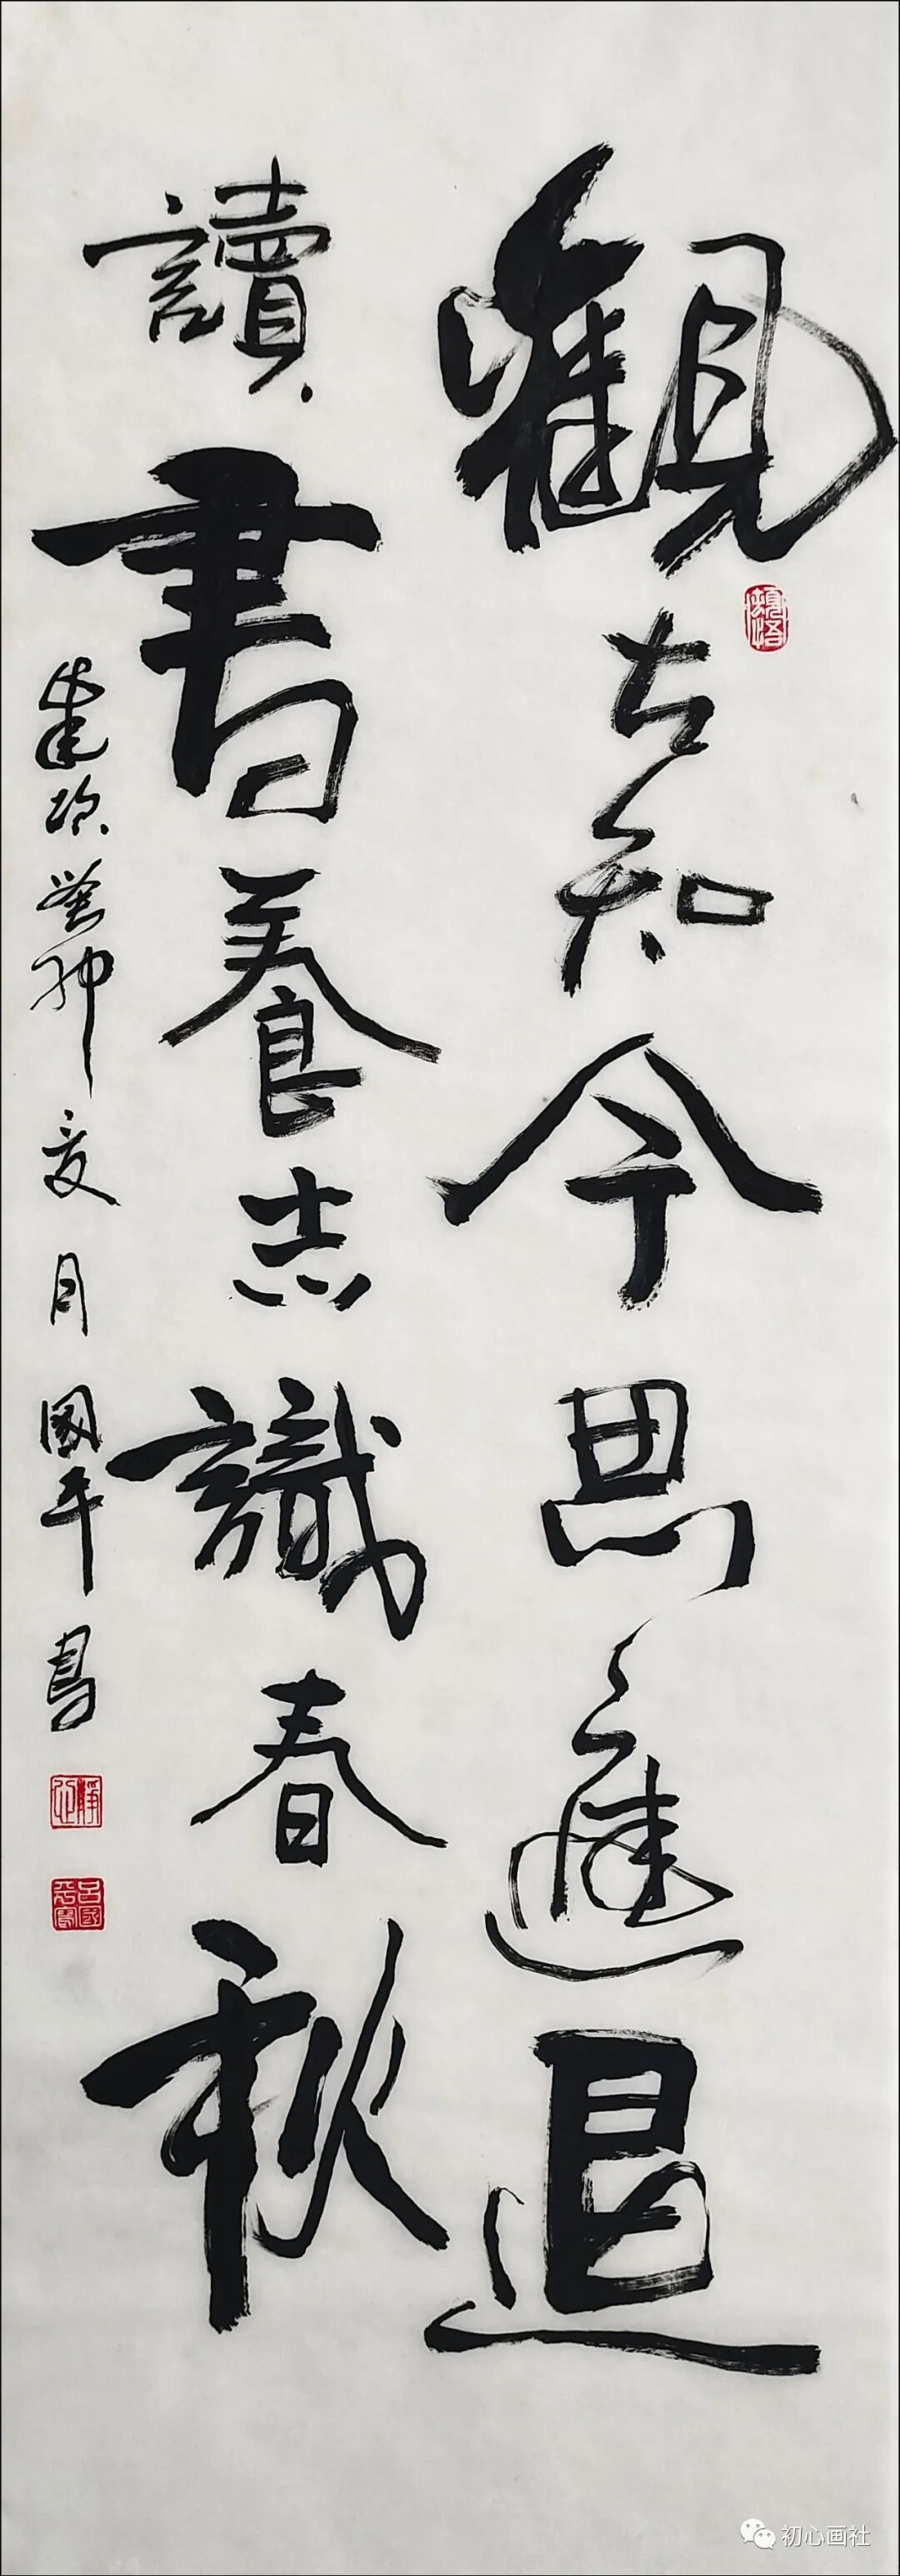 觀古知今思進退
讀書養志識春秋
歲次癸卯夏月國平書
初心画社